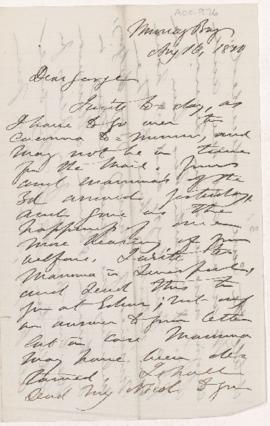 Acc. 976
Murray Bay
Aug 16, 1870
Dear George
I write to-day, as
I have to go over to
Cacouna to-morrow, and
may not be in time
for the mail, yours
and Mamma's of the
3d arrived yesterday,
and gave us the
happiness of once
more hearing of your
welfare, I write to
Mamma in Liverpool,
and send this to
you at
an answer to your letter
but in case Mamma
may have been
I shall
send my next to you